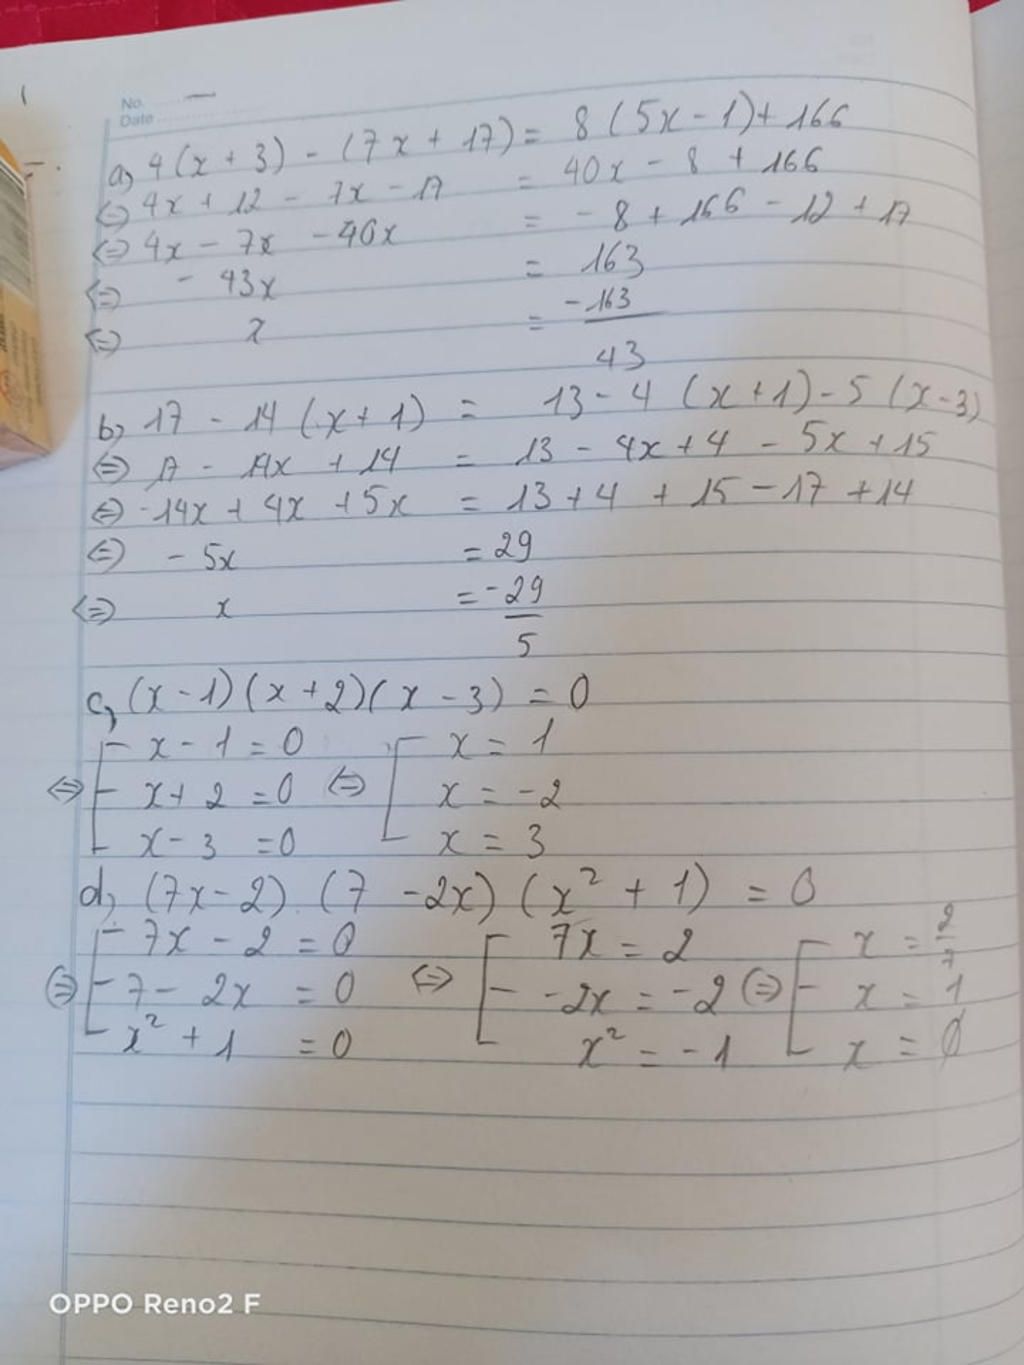 No.
Date
a, 4(x + 3) - (7x + 17) = 8(5x - 1) + 166
<=> 4x + 12 - 7x - 17 = 40x - 8 + 166
<=> 4x - 7x - 40x = - 8 + 166 - 12 + 17
<=> - 43x = 163
<=> x = -163/43
b, 17 - 14(x + 1) = 13 - 4(x + 1) - 5(x - 3)
<=> 17 - 14x + 14 = 13 - 4x + 4 - 5x + 15
<=> -14x + 4x + 5x = 13 + 4 + 15 - 17 + 14
<=> - 5x = 29
<=> x = -29/5
c, (x - 1)(x + 2)(x - 3) = 0
<=> [ x - 1 = 0 [ x = 1
x + 2 = 0 <=> x = -2
x - 3 = 0 x = 3
d, (7x - 2). (7 - 2x) (x² + 1) = 0
<=> [ 7x - 2 = 0 [ 7x = 2 [ x = 2/7
7 - 2x = 0 <=> -2x = -2 <=> x = 1
x² + 1 = 0 x² = -1 x = ∅
OPPO Reno2 F